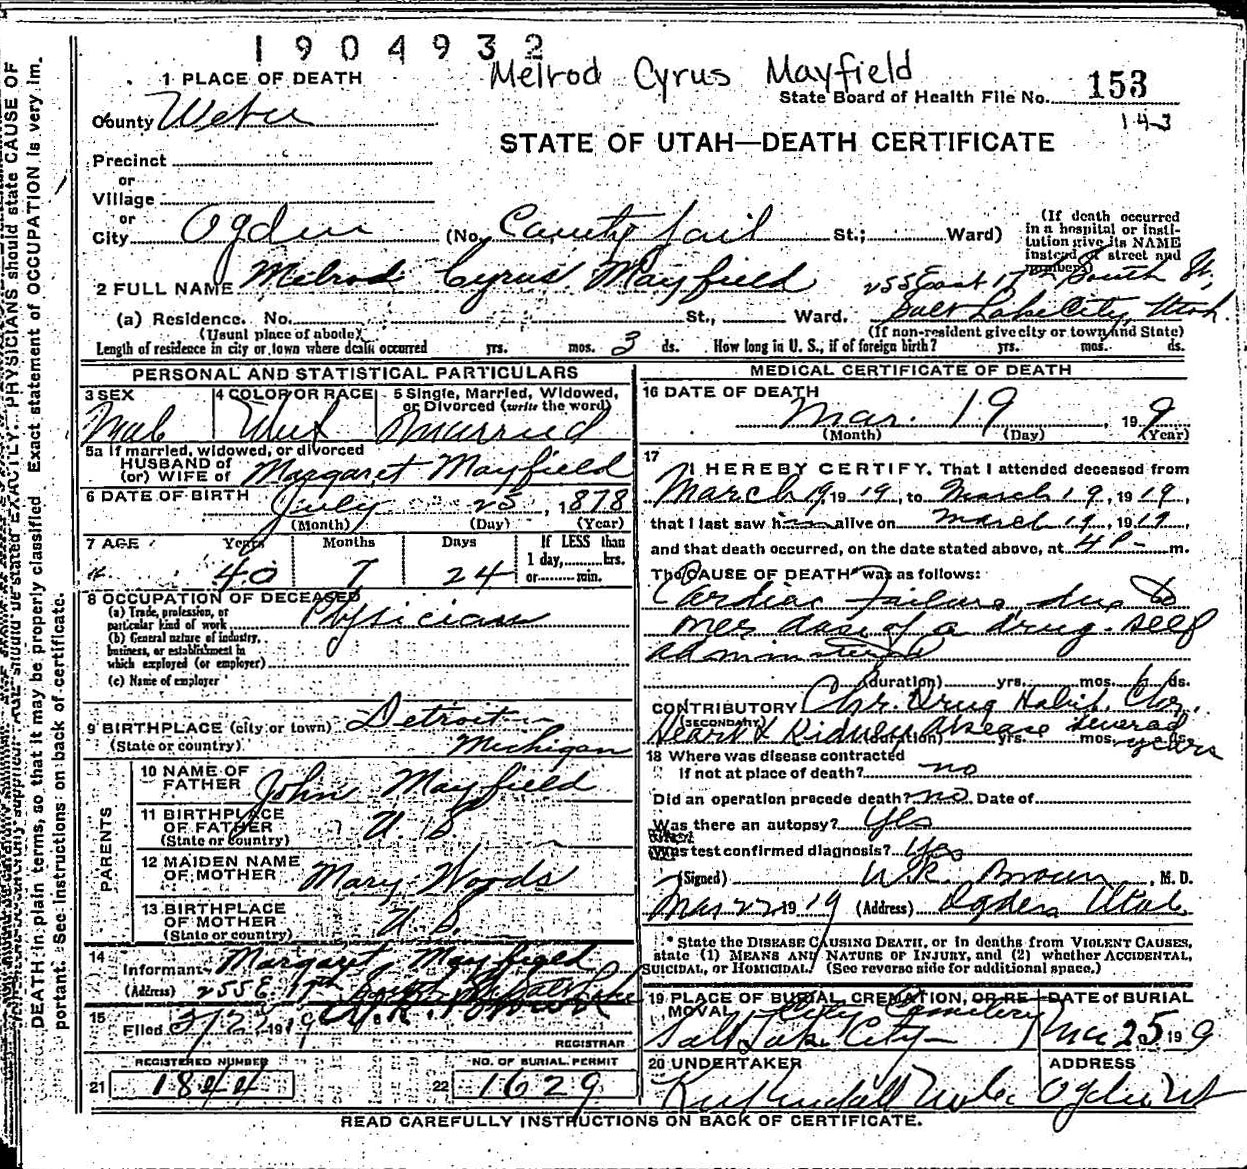 1904932
Melrod Cyrus Mayfield
1 PLACE OF DEATH
State Board of Health File No. 153
143
County Weber
STATE OF UTAH—DEATH CERTIFICATE
Precinct
or
Village
or
City Ogden (No. County Jail St.; Ward)
(If death occurred in a hospital or institution give its NAME instead of street and number)
2 FULL NAME Melrod Cyrus Mayfield
255 East 17th South St,
(a) Residence. No. St., Ward. Salt Lake City Utah.
(Usual place of abode) (If non-resident give city or town and State)
Length of residence in city or town where death occurred yrs. mos. 3 ds. How long in U. S., if of foreign birth? yrs. mos. ds.
PERSONAL AND STATISTICAL PARTICULARS
3 SEX 4 COLOR OR RACE 5 Single, Married, Widowed, or Divorced (write the word)
Male Married
5a If married, widowed, or divorced
HUSBAND of
(or) WIFE of Margaret Mayfield
6 DATE OF BIRTH July 25, 1878
(Month) (Day) (Year)
7 AGE Years Months Days If LESS than 1 day, hrs. or min.
40 7 24
8 OCCUPATION OF DECEASED
(a) Trade, profession, or particular kind of work Physician
(b) General nature of industry, business, or establishment in which employed (or employer)
(c) Name of employer
9 BIRTHPLACE (city or town) Detroit
(State or country) Michigan
PARENTS
10 NAME OF FATHER John Mayfield
11 BIRTHPLACE OF FATHER (State or country) U. S
12 MAIDEN NAME OF MOTHER Mary Woods
13 BIRTHPLACE OF MOTHER (State or country) U. S.
14
Informant Margaret Mayfield
(Address) 255 E 17th South St Salt Lake
15
Filed 3/2 1919 W.R. Brown
REGISTRAR
REGISTERED NUMBER NO. OF BURIAL PERMIT
21 1844 22 1629
MEDICAL CERTIFICATE OF DEATH
16 DATE OF DEATH
Mar. 19, 199
(Month) (Day) (Year)
17
I HEREBY CERTIFY, That I attended deceased from
March 19, 1919, to March 19, 1919,
that I last saw h alive on March 19, 1919
and that death occurred, on the date stated above, at 4 P- m.
The CAUSE OF DEATH* was as follows:
Cardiac Failure, due to
over dose of a drug self
administered
(duration) yrs. mos. ds.
CONTRIBUTORY Chr. Drug Habit, Chr.
(SECONDARY) Heart & Kidney disease several years
(duration) yrs. mos. ds.
18 Where was disease contracted
If not at place of death? no
Did an operation precede death? no. Date of
Was there an autopsy? Yes
What test confirmed diagnosis? Yes
(Signed) W.R. Brown, M. D.
Mar 22 1919 (Address) Ogden Utah
* State the DISEASE CAUSING DEATH, or in deaths from VIOLENT CAUSES,
state (1) MEANS AND NATURE OF INJURY, and (2) whether ACCIDENTAL,
SUICIDAL, or HOMICIDAL. (See reverse side for additional space.)
19 PLACE OF BURIAL, CREMATION, OR REMOVAL DATE of BURIAL
City Cemetery
Salt Lake City Mar 25 199
20 UNDERTAKER ADDRESS
Kirkendall Ogden Ut
READ CAREFULLY INSTRUCTIONS ON BACK OF CERTIFICATE.
PHYSICIANS should state CAUSE OF
DEATH in plain terms, so that it may be properly classified. Exact statement of OCCUPATION is very im-
portant. See instructions on back of certificate.